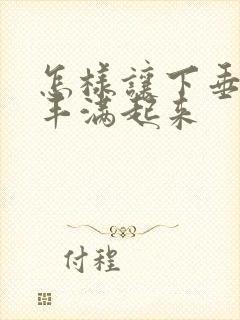 怎樣讓下垂
丰满起来
付程